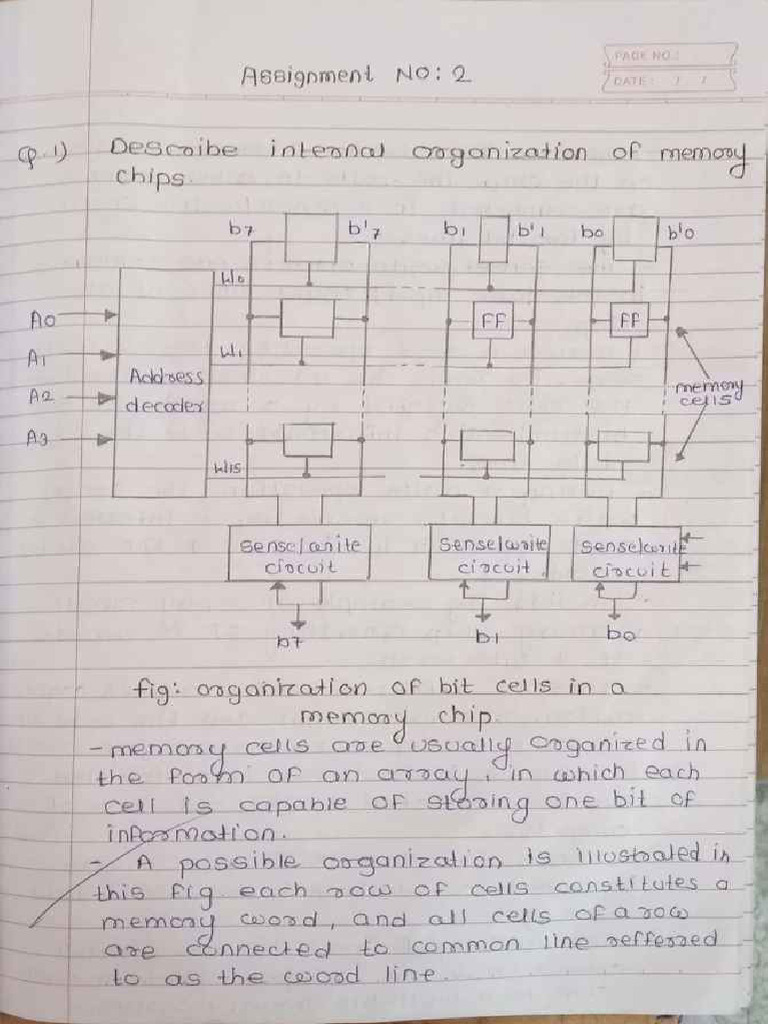 PAGE NO.:
DATE: / /
Assignment NO: 2
Q.1) Describe internal organization of memory
chips.
b7 b'7 b1 b'1 b0 b'0
W0
A0 FF FF
W1
A1
Address
A2 decoder
memory
cells
A3
W15
Sense/write Sense/write Sense/write
circuit circuit circuit
b7 b1 b0
fig: organization of bit cells in a
memory chip.
- memory cells are usually organized in
the form of an array, in which each
cell is capable of storing one bit of
information.
- A possible organization is illustrated in
this fig each row of cells constitutes a
memory word, and all cells of a row
are connected to common line refferred
to as the word line.